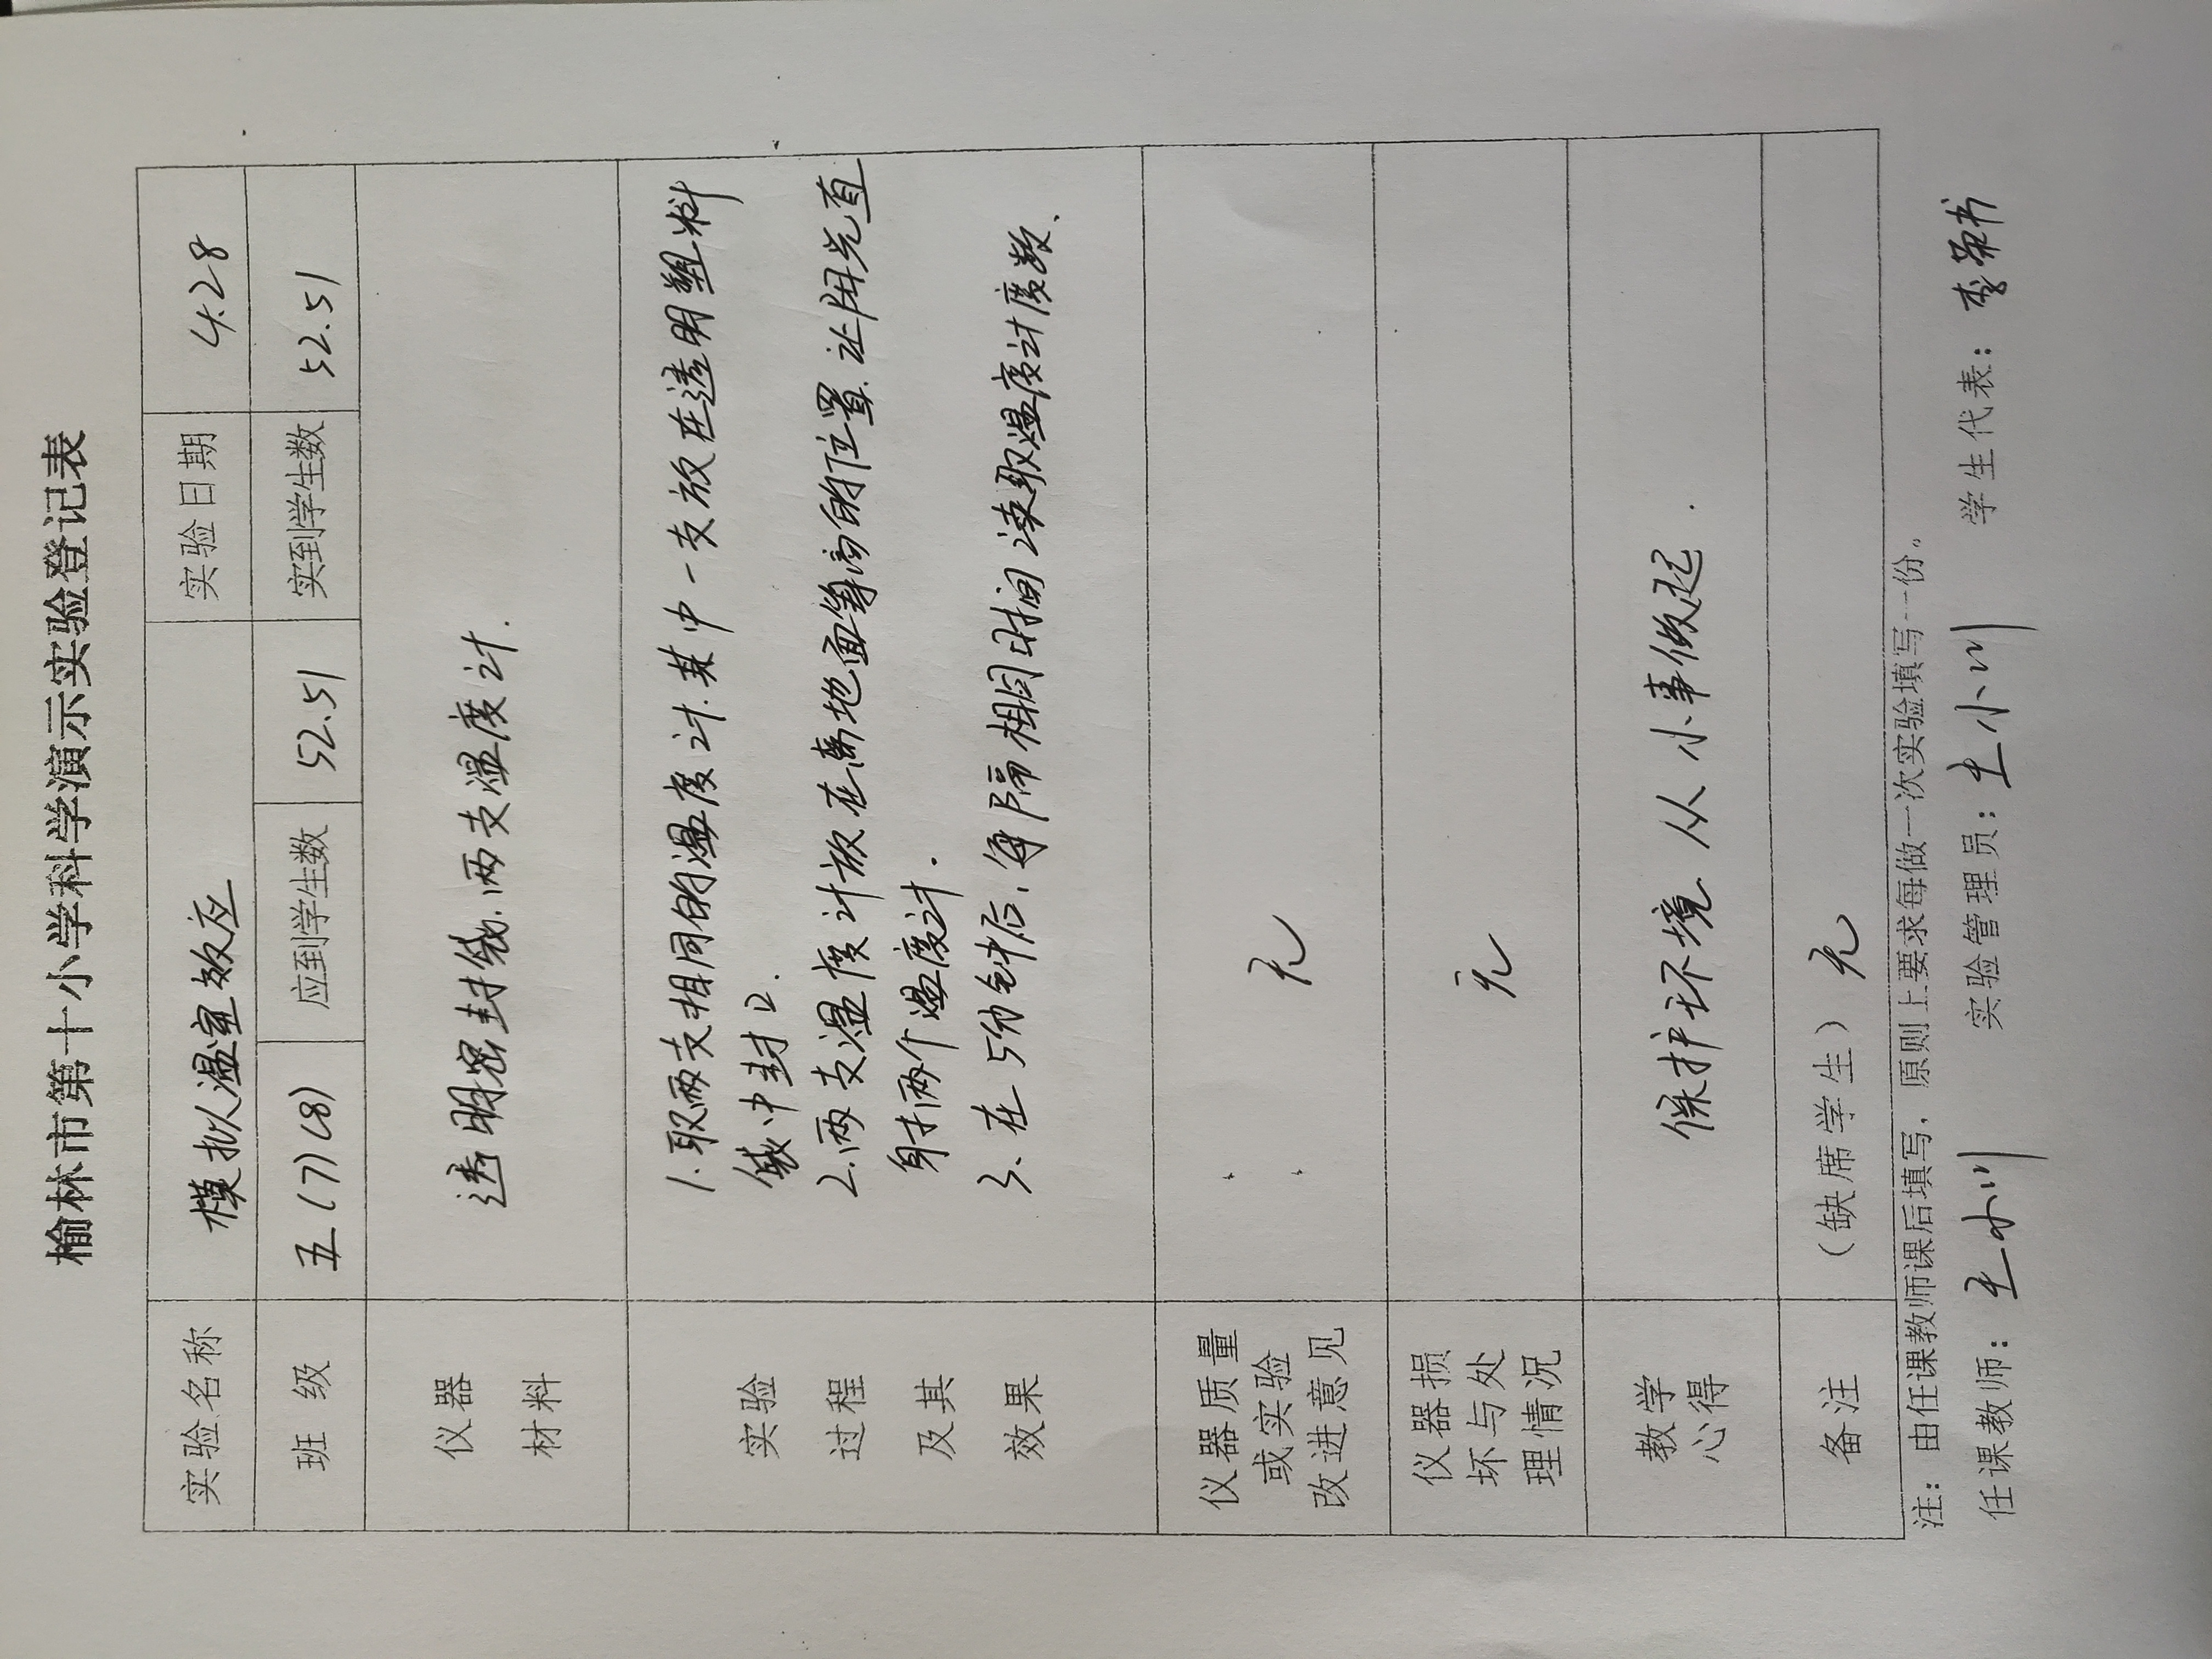 榆林市第十小学科学演示实验登记表
实验名称 模拟温室效应 实验日期 4.28
班 级 五(7)(8) 应到学生数 52.51 实到学生数 52.51
仪器
材料
透明密封袋.两支温度计.
实验
过程
及其
效果
1.取两支相同的温度计.其中一支放在透明塑料
袋中封口.
2.两支温度计放在离地面等高的位置.让阳光直
射两个温度计.
3、在5分钟后,每隔相同时间读取温度计度数、
仪器质量
或实验
改进意见
无
仪器损
坏与处
理情况
无
教学
心得
保护环境.从小事做起.
备注 (缺席学生) 无
注:由任课教师课后填写,原则上要求每做一次实验填写一份。
任课教师:王小川 实验管理员:王小川 学生代表:李